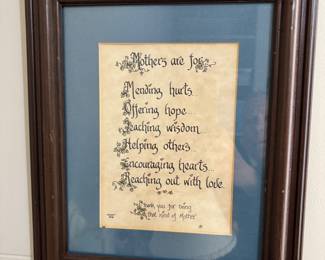 Mothers are for
Mending hurts
Offering hope...
Teaching wisdom
Helping others
Encouraging hearts...
Reaching out with love.
Thank you for being
that kind of Mother